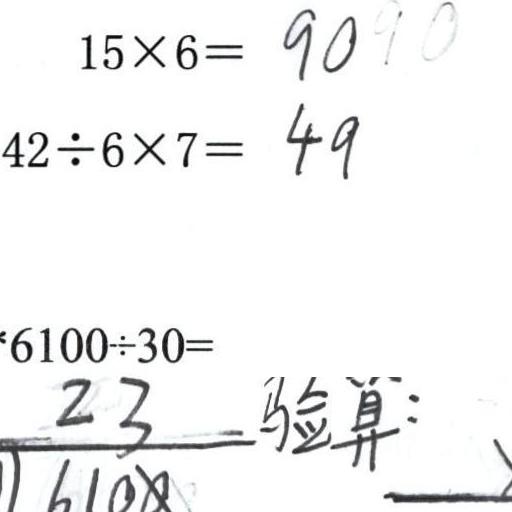 15×6= 90 90
42÷6×7= 49
*6100÷30=
23 验算:
610